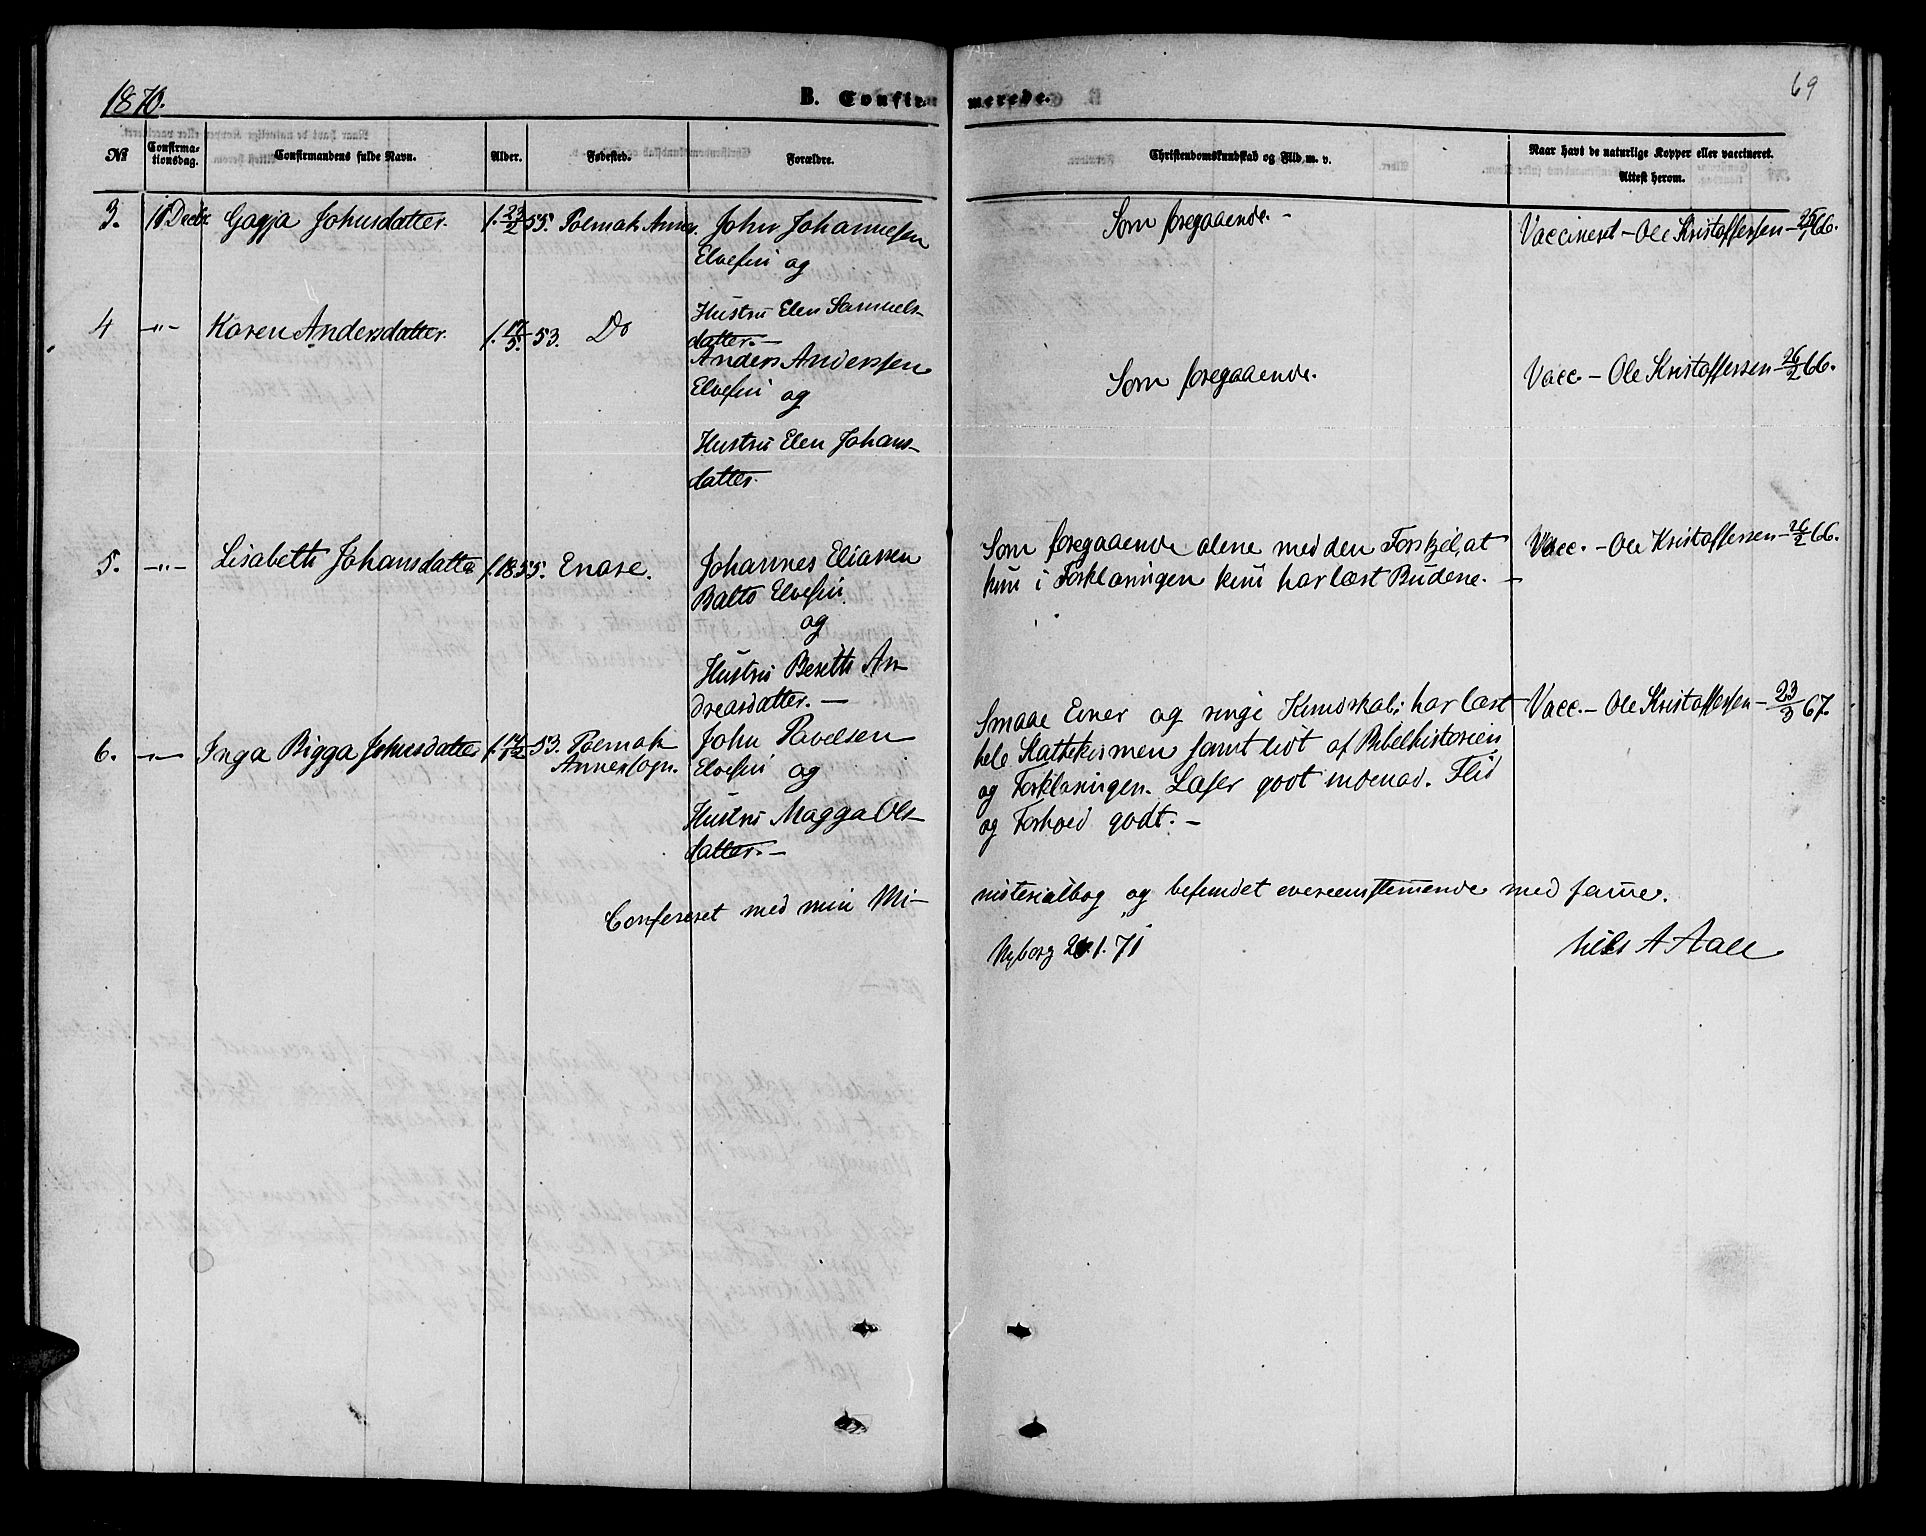 1870.
B. Confirmerede.
69
No
Confirmationsdag.
Confirmandens fulde Navn.
Alder.
Fødested.
Forældre.
Christendomskundskab og Flid m. v.
Naar havt de naturlige Kopper eller vaccineret.
Attest herom.
3. Decbr Gagja Johnsdatter. f. 23/2 55. Polmak Annex. John Johannesen
Elvefin og
Hustru Elen Samuels-
datter.—
Som foregaaende.— Vaccineret — Ole Kristoffersen — 66.
4 —"— Karen Andersdatter. f. 17/5. 53. Do
Anders Anderssen
Elvefin og
Hustru Elen Johans-
datter.
Som foregaaende. Vacc. — Ole Kristoffersen — 26/2 66.
5. —"— Lisabeth Johansdatter f. 1855. Enare. Johannes Eliassen
Balto Elvefin
og
Hustru Bereth An-
dreasdatter.—
Som foregaaende alene med den Forskjel, at
hun i Forklaringen kun har læst Budene.—
Vacc. — Ole Kristoffersen — 26/2 66.
6. —"— Inga Bigga Johnsdatter f. 53. Polmak
Annexsogn.
John Povelsen
Elvefin og
Hustru Magga Ols-
datter.—
Smaae Evner og ringe Kundskab; har læst
hele Kathekismen samt lidt af Bibelhistorien
og Forklaringen. Læser godt indenad. Flid
og Forhold godt.—
Vacc. — Ole Kristoffersen — 23/3 67.
Confereret med min Mi-
nisterialbog og befundet overeenstemmende med samme.
Nyborg 26.1.71
Niels A Aall